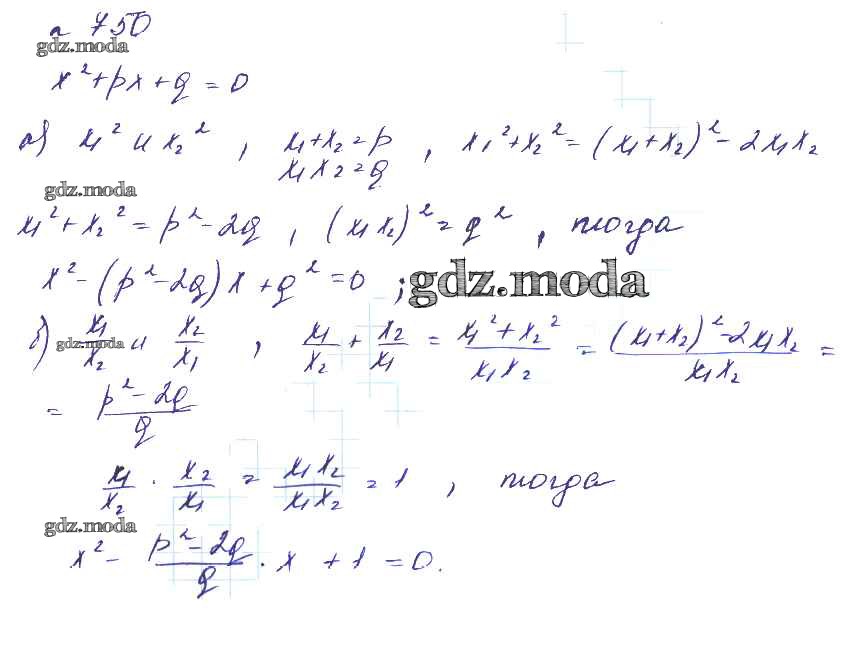 № 750
gdz.moda
x² + px + q = 0
а) x₁² и x₂² , x₁ + x₂ = p , x₁² + x₂² = (x₁ + x₂)² - 2x₁x₂
x₁x₂ = q
gdz.moda
x₁² + x₂² = p² - 2q , (x₁x₂)² = q² , тогда
x² - (p² - 2q)x + q² = 0 ;
gdz.moda
б) x₁/x₂ и x₂/x₁ , x₁/x₂ + x₂/x₁ = (x₁² + x₂²)/(x₁x₂) = ((x₁ + x₂)² - 2x₁x₂)/(x₁x₂) =
gdz.moda
= (p² - 2q)/q
x₁/x₂ · x₂/x₁ = x₁x₂/x₁x₂ = 1 , тогда
gdz.moda
x² - (p² - 2q)/q · x + 1 = 0.